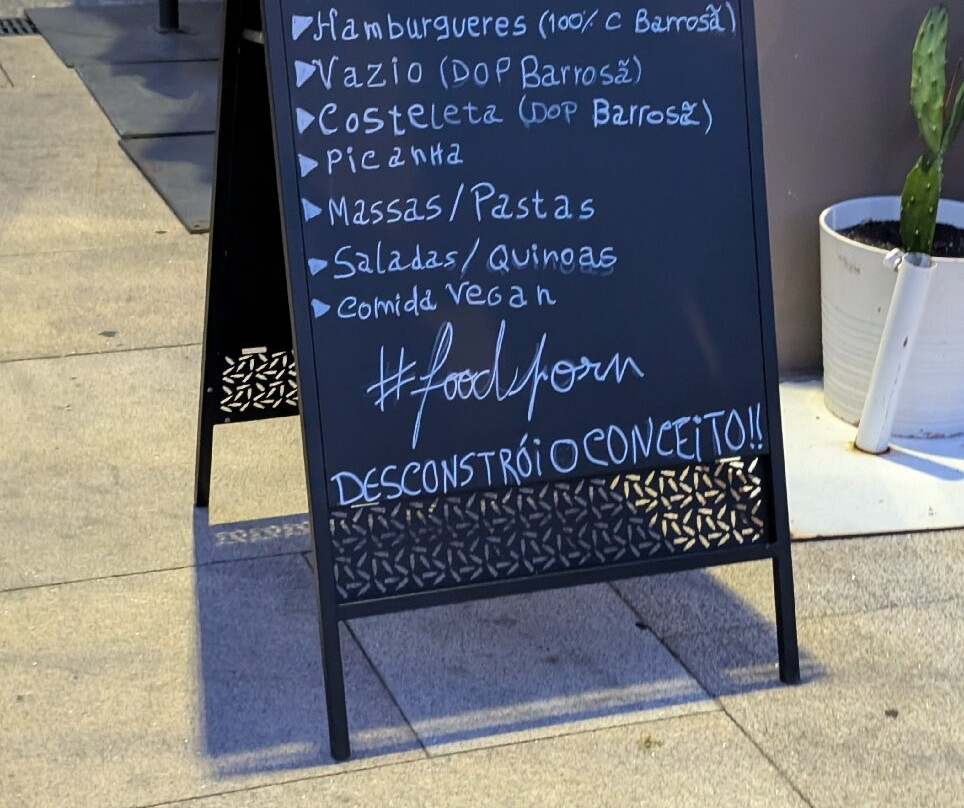 Hamburgueres (100% C Barrosã)
Vazio (DOP Barrosã)
Costeleta (DOP Barrosã)
Picanha
Massas/Pastas
Saladas/Quinoas
Comida Vegan
#foodporn
DESCONSTRÓi O CONCEiTO!!